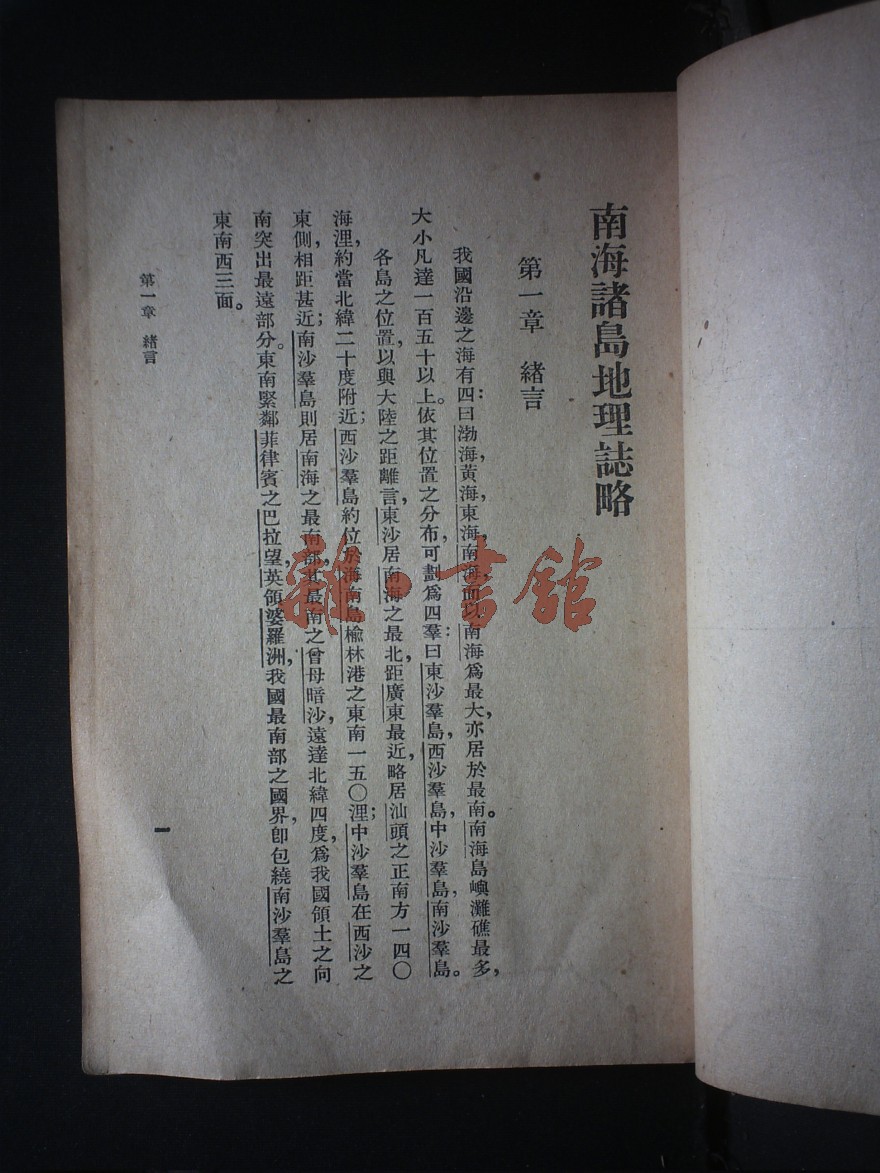 南海諸島地理誌略
第一章　緒言
我國沿邊之海有四：曰渤海，黃海，東海，南海，而以南海爲最大，亦居於最南。南海島嶼灘礁最多，
大小凡達一百五十以上。依其位置之分布，可劃爲四羣：曰東沙羣島，西沙羣島，中沙羣島，南沙羣島。
各島之位置，以與大陸之距離言，東沙居南海之最北，距廣東最近，略居汕頭之正南方一四〇
海浬，約當北緯二十度附近；西沙羣島約位於海南島榆林港之東南一五〇浬；中沙羣島在西沙之
東側，相距甚近；南沙羣島則居南海之最南部，其最南之曾母暗沙，遠達北緯四度，爲我國領土之向
南突出最遠部分。東南緊鄰菲律賓之巴拉望，英領婆羅洲，我國最南部之國界，卽包繞南沙羣島之
東南西三面。
第一章　緒言
一
雜·書館